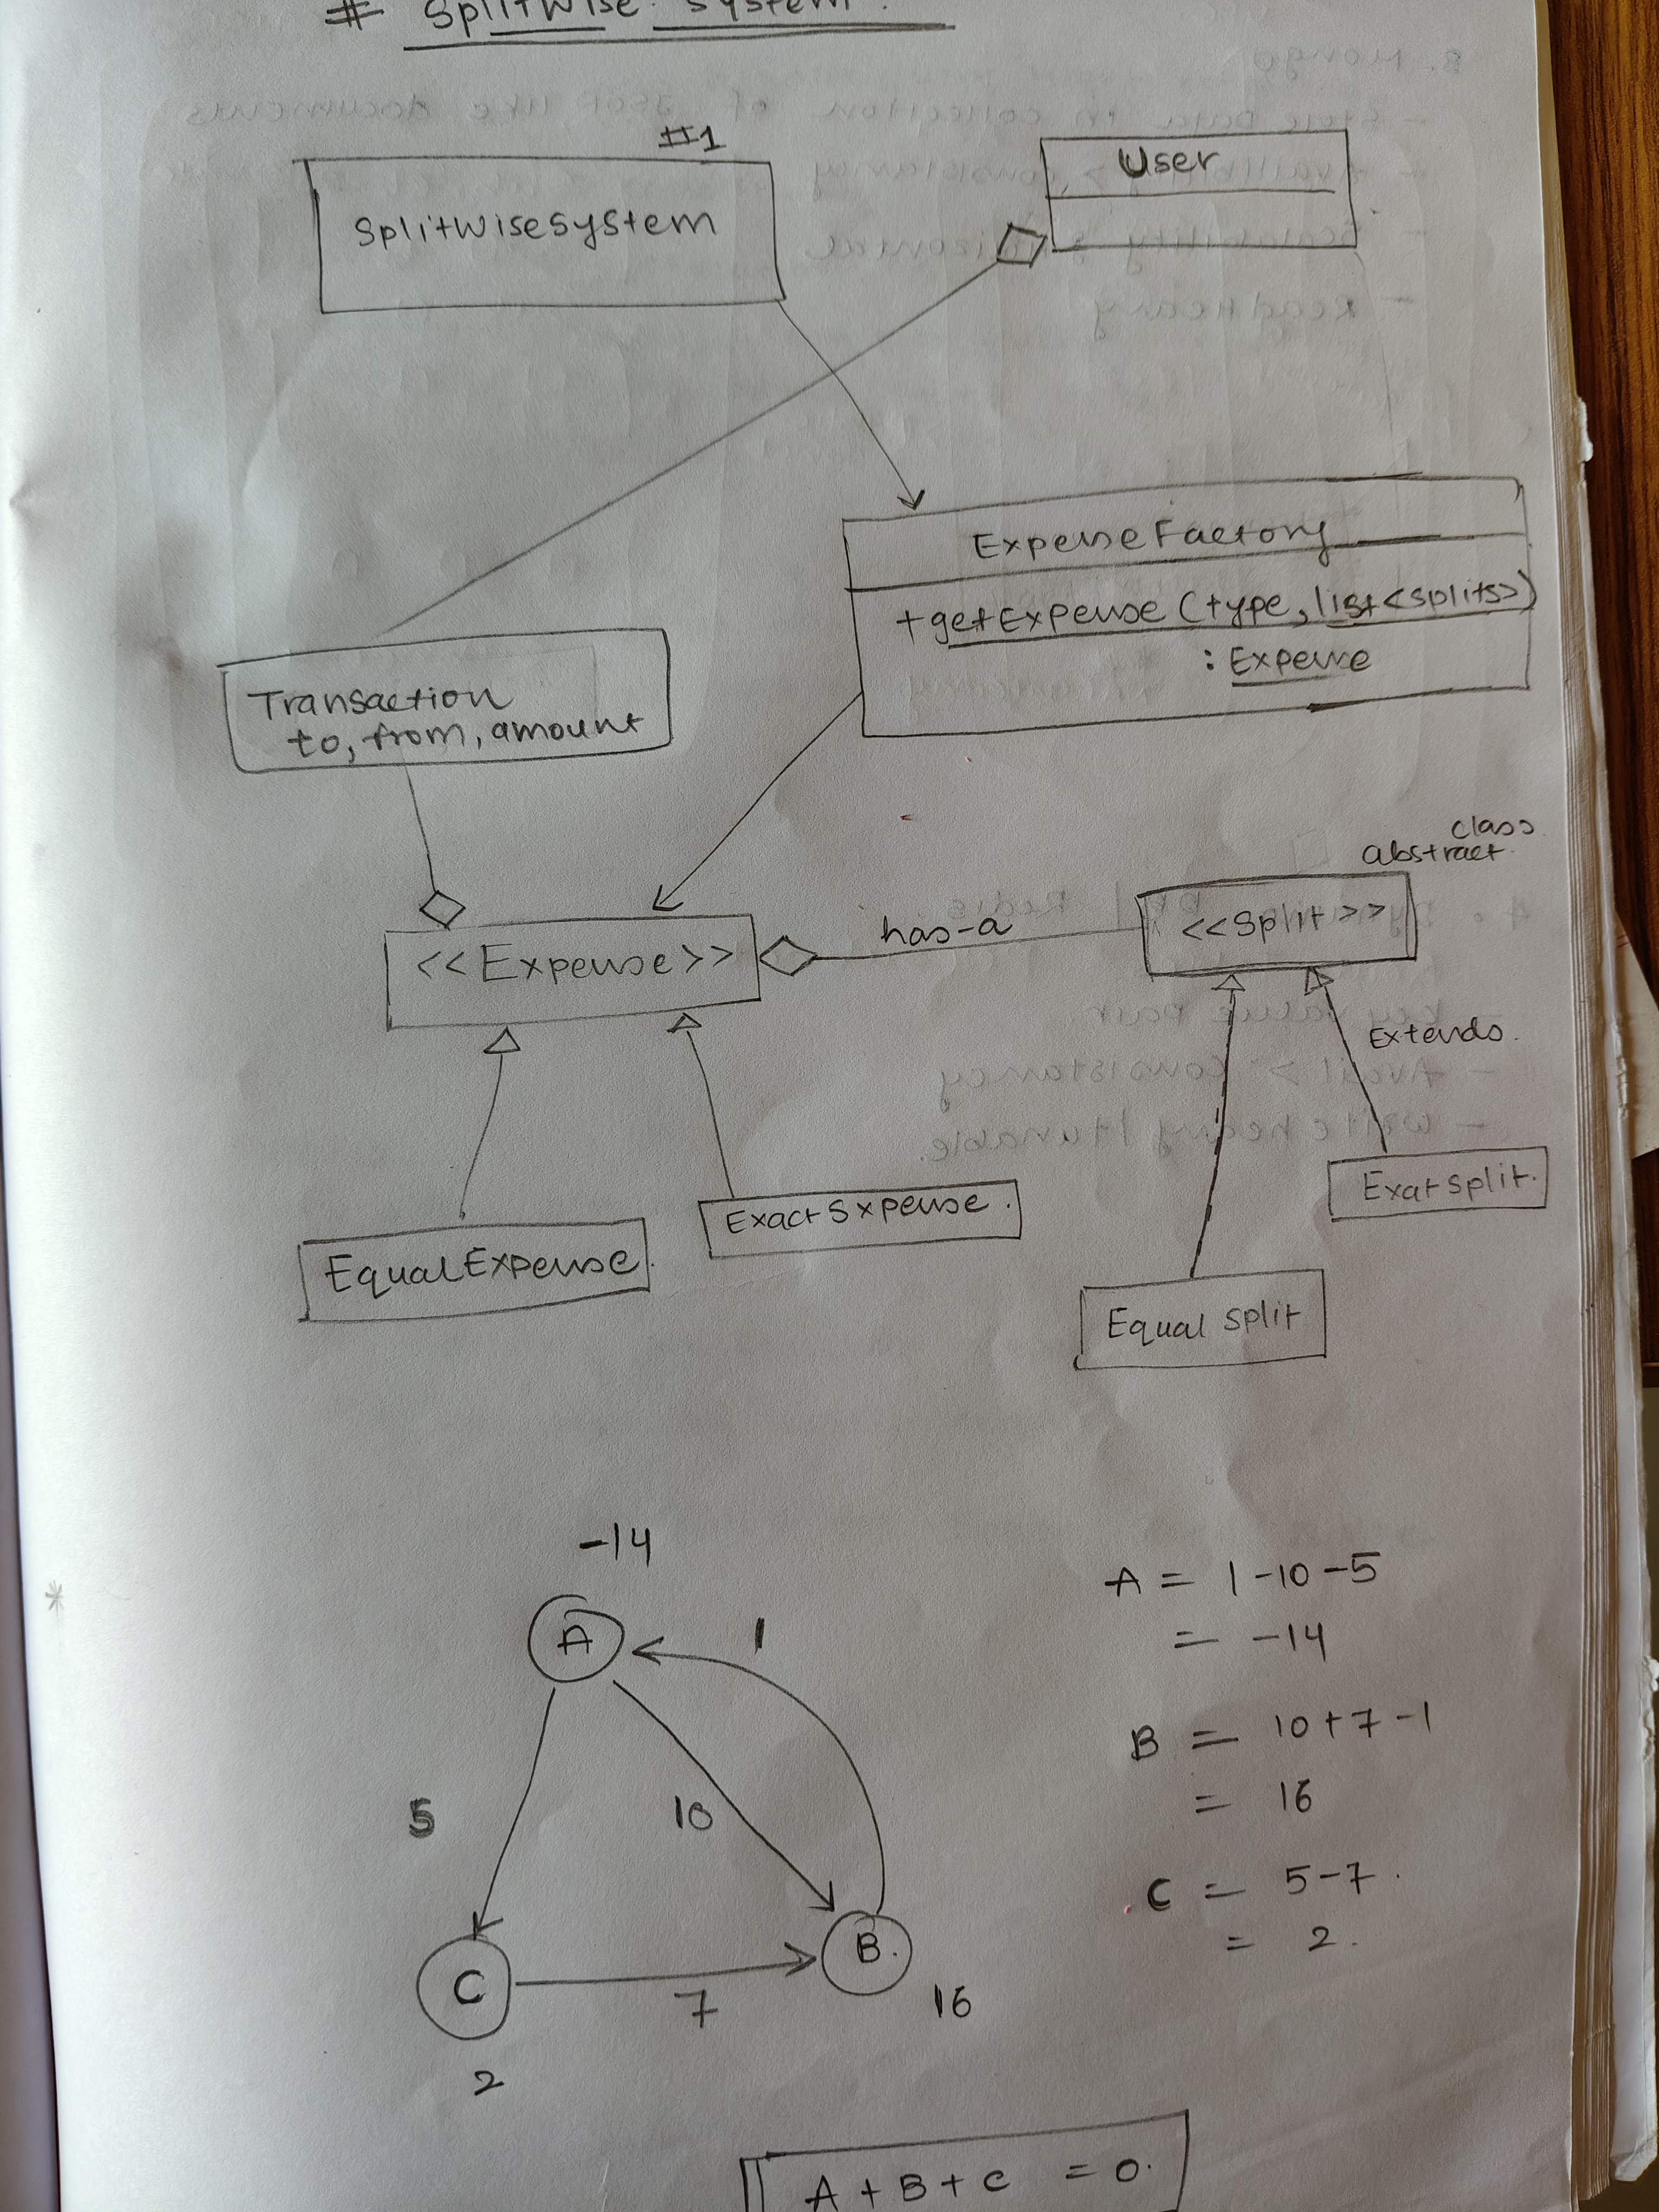 # Splitwise System.
#1
SplitWisesystem
User
ExpenseFactory
+getExpense (type, list<splits>)
: Expense
Transaction
to, from, amount
class
abstract
<<Expense>>
has-a
<<Split>>
Extends.
ExactSxpense.
Exatsplit.
EqualExpense.
Equal split
-14
A
1
5
10
C
7
B.
16
2
A = 1-10-5
= -14
B = 10+7-1
= 16
C = 5-7.
= 2.
A + B + C = 0.